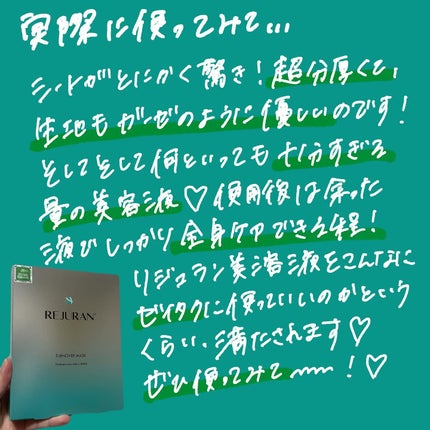 実際に使ってみて...
シートがとにかく驚き！超分厚くて、
生地もガーゼのように優しいのです！
そしてそして何といっても十分すぎる
量の美容液♡使用後は余った
液でしっかり全身ケアできる程！
リジュラン美溶液をこんなに
ゼイタクに使っていいのかという
くらい、満たされます♡
ぜひ使ってみて〜〜！♡
REJURAN®
TURNOVER MASK